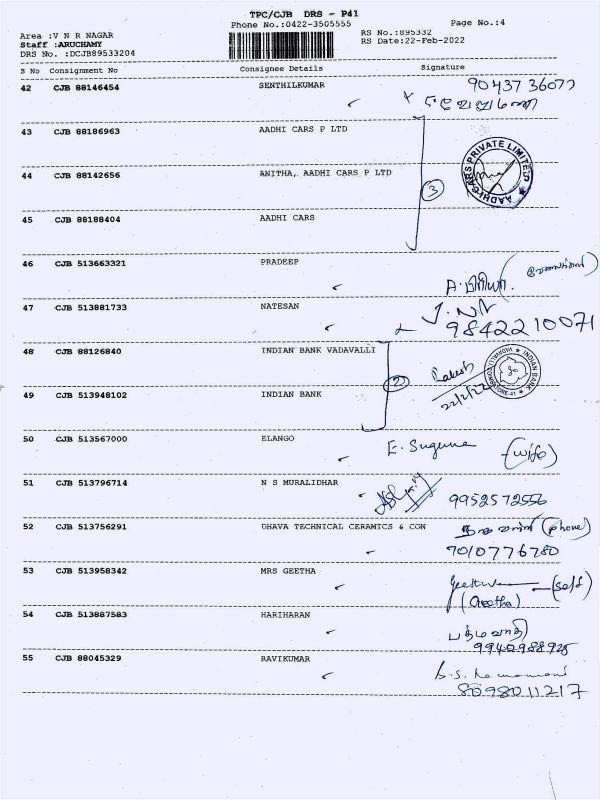 TPC/CJB DRS - P41
Phone No.:0422-3505555 Page No.:4
Area :V N R NAGAR RS No.:895332
Staff :ARUCHAMY RS Date:22-Feb-2022
DRS No. :DCJB89533204
S No Consignment No Consignee Details Signature
42 CJB 88146454 SENTHILKUMAR 90437 36077
43 CJB 88186963 AADHI CARS P LTD
AADHI CARS PRIVATE LIMITED
44 CJB 88142656 ANITHA, AADHI CARS P LTD 3
45 CJB 88188404 AADHI CARS
46 CJB 513663321 PRADEEP
A. பிரியா.
47 CJB 513881733 NATESAN J. NR
9842210071
48 CJB 88126840 INDIAN BANK VADAVALLI
Rakesh INDIAN BANK
2 22/2/22
49 CJB 513948102 INDIAN BANK
50 CJB 513567000 ELANGO E. Suguna (wife)
51 CJB 513796714 N S MURALIDHAR
9952572556
52 CJB 513756291 DHAVA TECHNICAL CERAMICS & CON (phone)
7010776780
53 CJB 513958342 MRS GEETHA (self)
(Geetha)
54 CJB 513887583 HARIHARAN பத்மாவதி
9942988925
55 CJB 88045329 RAVIKUMAR
8098011217